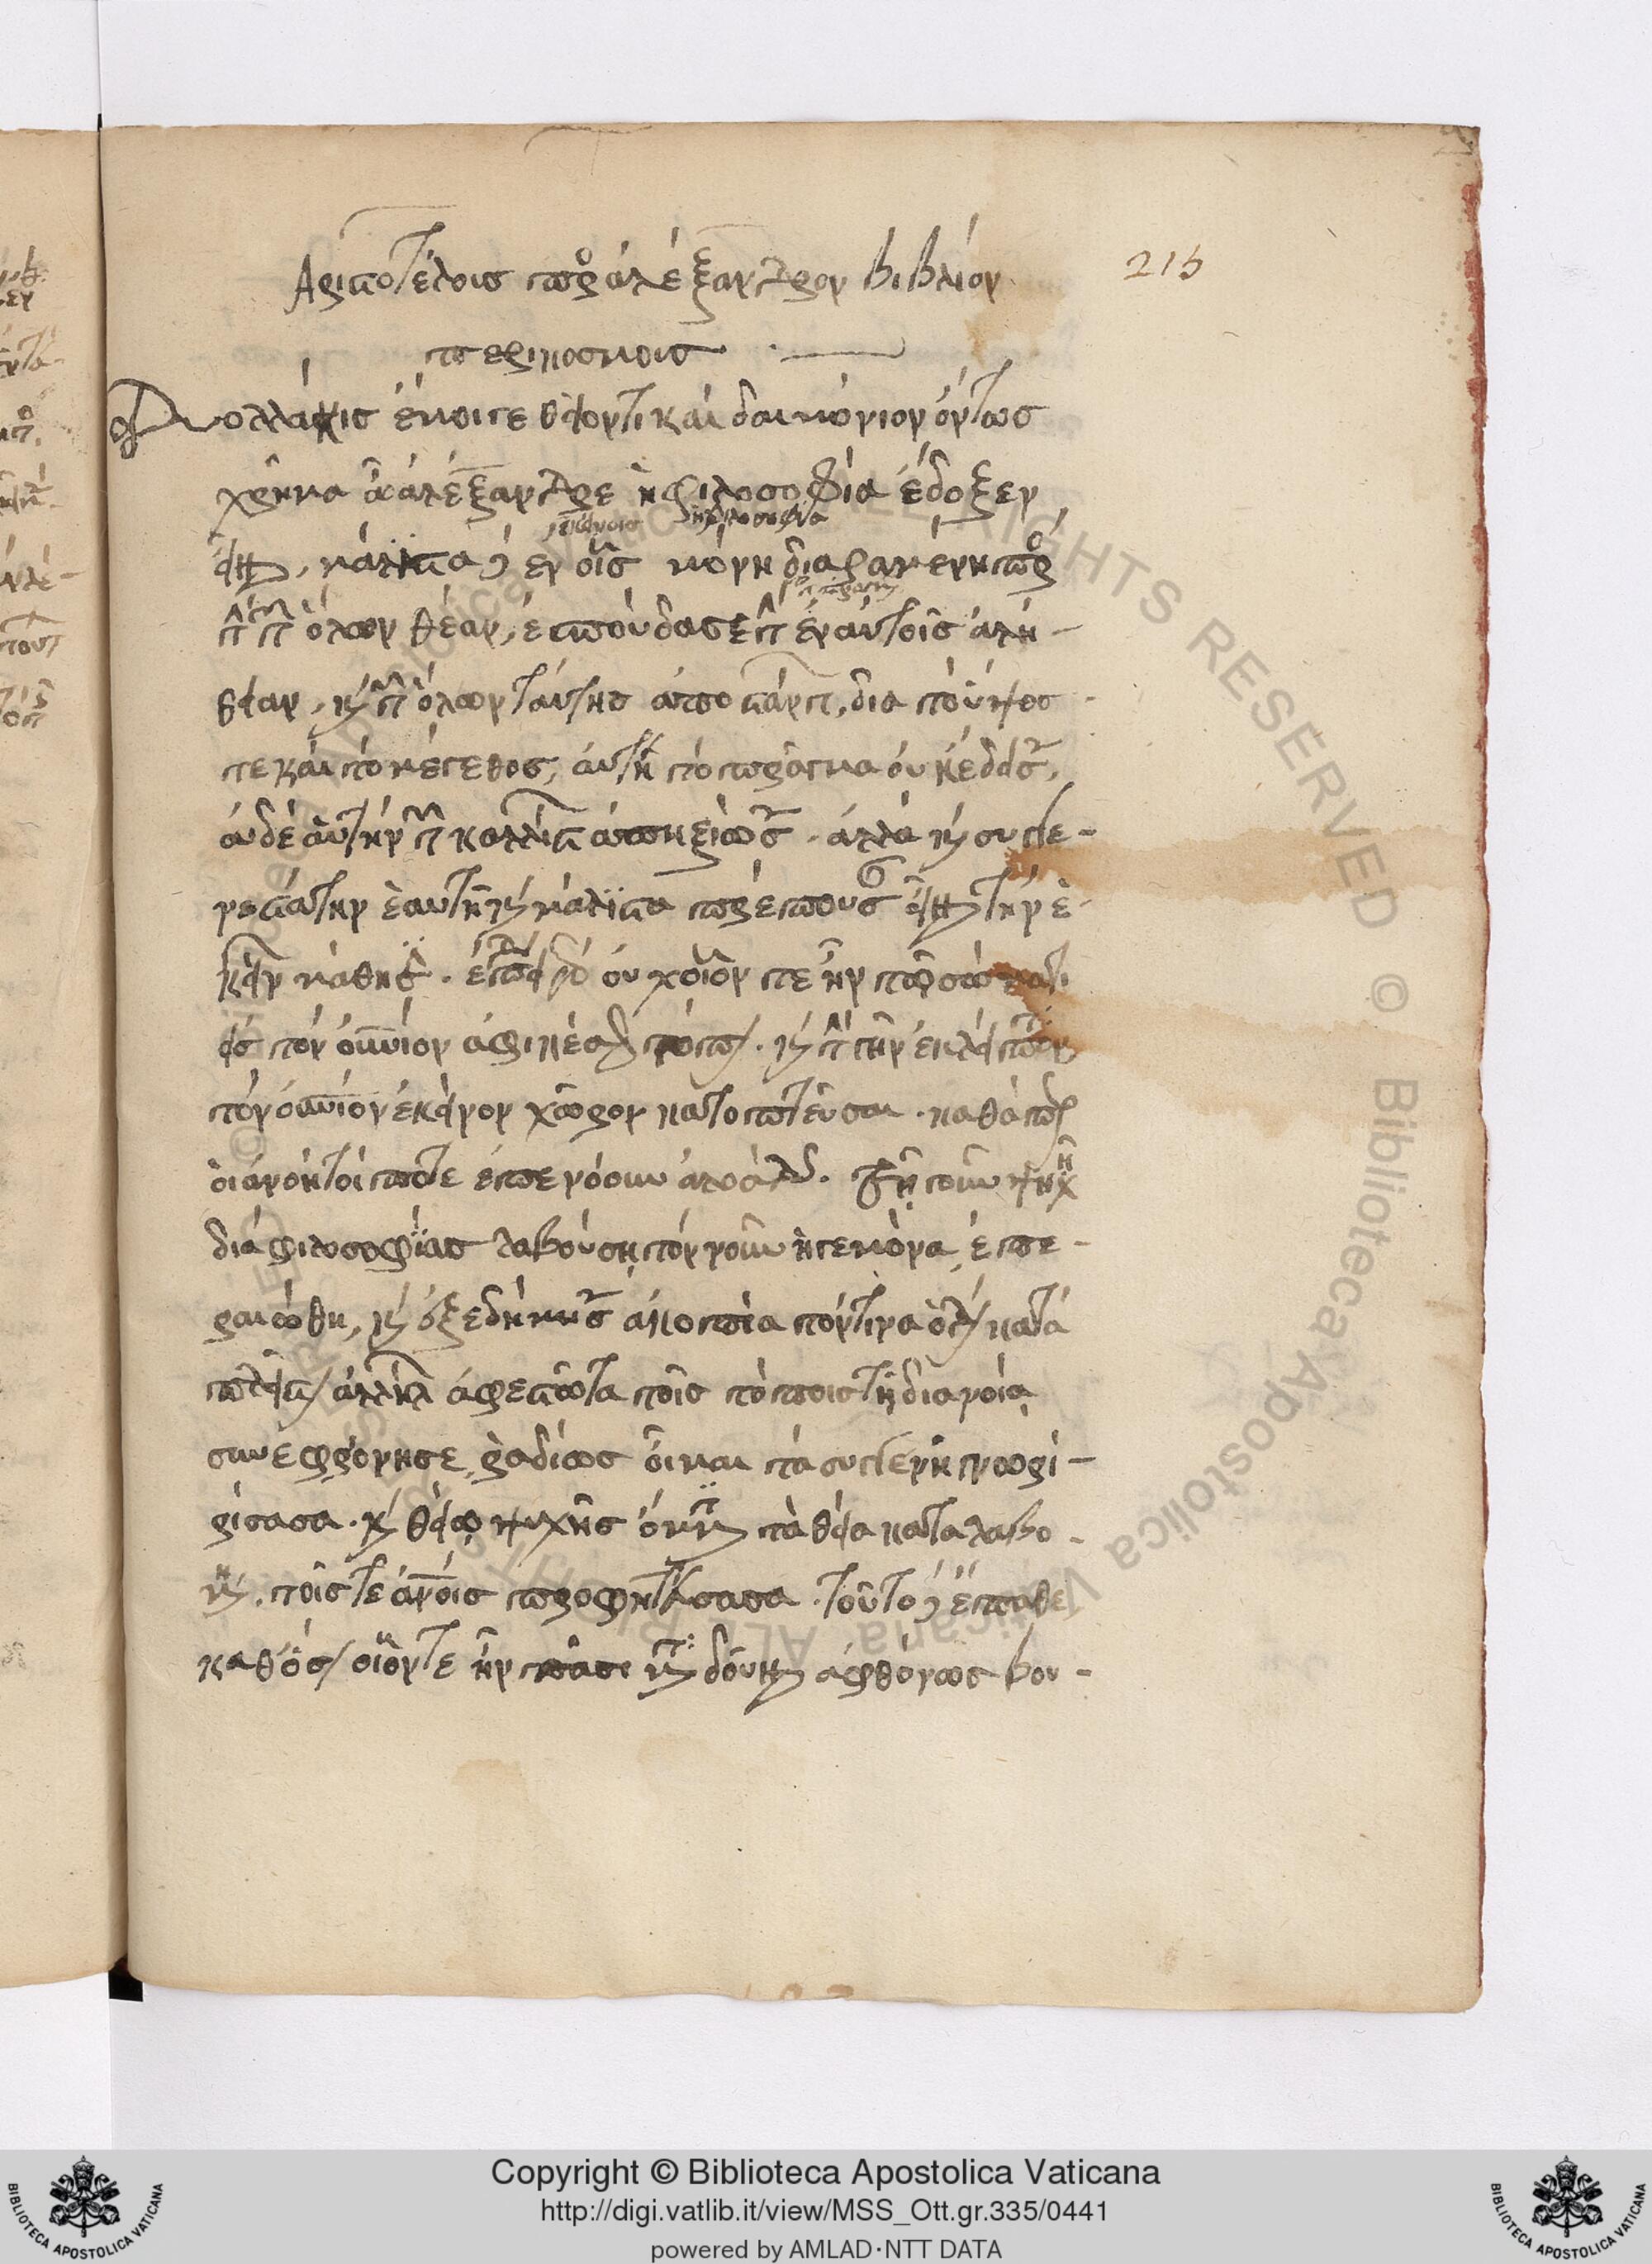 Ἀριστοτέλους πρὸς ἀλέξανδρον βιβλίον
περὶ κόσμου
215
Πολλάκις ἔμοιγε θεῖόν τι καὶ δαιμόνιον ὄντως
χρῆμα ὦ ἀλέξανδρε ἡ φιλοσοφία ἔδοξεν
εἶναι, μάλιστα δὲ ἐν οἷς μόνη διαραμένη πρὸς
ἐκείνοις ἡ φιλοσοφία
τὴν τῶν ὅλων θέαν, ἐσπούδασε τὴν ἐν αὐτοῖς ἀλή-
θειαν, καὶ τῶν ὅλων ταύτης ἀποστάντων, διὰ τὸ ὕψος
τε καὶ τὸ μέγεθος, αὐτὴ τὸ πρᾶγμα οὐκ ἔδεισεν,
οὐδὲ αὑτὴν τῶν καλλίστων ἀπηξίωσεν. ἀλλὰ καὶ συγγε-
νεστάτην ἑαυτῇ καὶ μάλιστα πρέπουσαν εἶναι τὴν ἐ-
κείνων μάθησιν. ἐπειδὴ γὰρ οὐχ οἷόν τε ἦν τῷ σώματι
εἰς τὸν οὐράνιον ἀφικέσθαι τόπον. καὶ τὴν γῆν ἐκλιπόντα
τὸν οὐράνιον ἐκεῖνον χῶρον κατοπτεῦσαι. καθάπερ
οἱ ἀνόητοί ποτε ἐπενόουν ἀλωάδαι. ἡ γοῦν ψυχὴ
διὰ φιλοσοφίας λαβοῦσα τὸν νοῦν ἡγεμόνα, ἐπε-
ραιώθη, καὶ ἐξεδήμησεν ἀκοπίατόν τινα ὁδὸν καὶ τὰ
πλεῖστον ἀλλήλων ἀφεστῶτα τοῖς τόποις τῇ διανοίᾳ
συνεφρόνησε, ῥᾳδίως οἶμαι τὰ συγγενῆ γνωρί-
ρίσασα. καὶ θείῳ ψυχῆς ὄμματι τὰ θεῖα καταλαβο-
μένη. τοῖς τε ἀνοις προφητεύσασα. τοῦτο δὲ ἔπαθε
καθόσον οἷόν τε ἦν πᾶσι μεταδοῦναι ἀφθόνως βου-
Copyright © Biblioteca Apostolica Vaticana
http://digi.vatlib.it/view/MSS_Ott.gr.335/0441
powered by AMLAD·NTT DATA
BIBLIOTECA APOSTOLICA VATICANA
BIBLIOTECA APOSTOLICA VATICANA